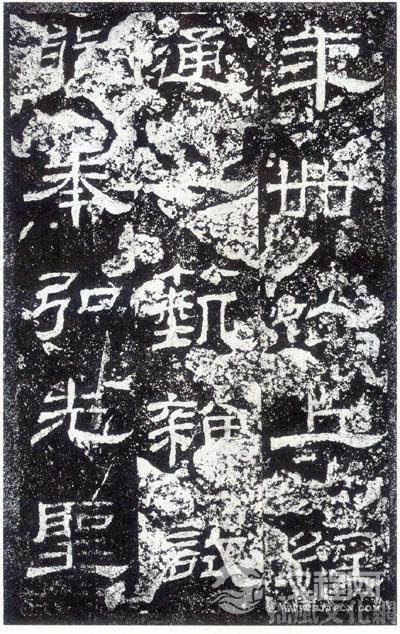 年卌以上經
通一藝雜試
能奉弘先聖